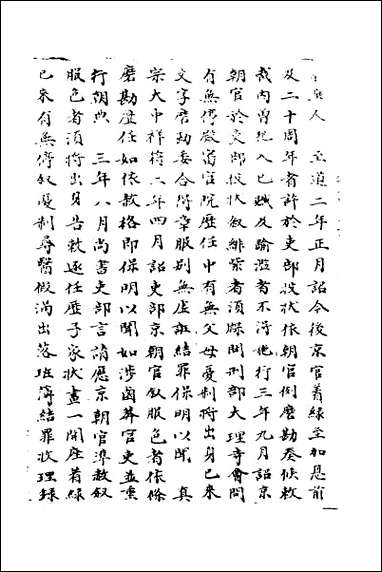 至道二年正月詔今後京官着緑至加恩前
及二十周年者許於吏部投狀依朝官例磨勘奏候敕
裁内曽犯入己贓及踰濫者不得施行三年九月詔京
朝官於吏部投狀叙緋紫者須牒問刑部大理寺會問
有無停殿審官院歴任中有無父母憂制将出身已來
文字磨勘委合得章服别無虚誑結罪保明以聞 真
宗大中祥符二年四月詔吏部京朝官叙服色者依條
磨勘歴任如依敕格即保明以聞如涉鹵莽官吏並重
行朝典 三年八月尚書吏部言請應京朝官準敕叙
服色者須将出身告敕逐任歴子家狀盡一開座着緑
已來有無停叙憂制尋醫假滿出落班簿結罪收理録